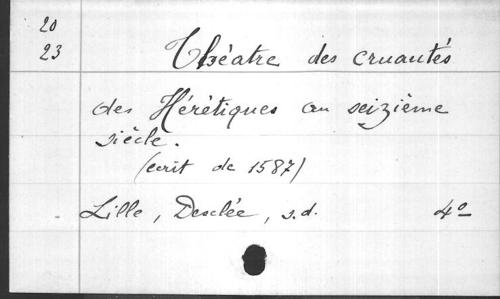 20
23
Théatre des cruautés
des Hérétiques au seizième
siècle.
(écrit de 1587)
Lille, Desclée, s.d. 4º